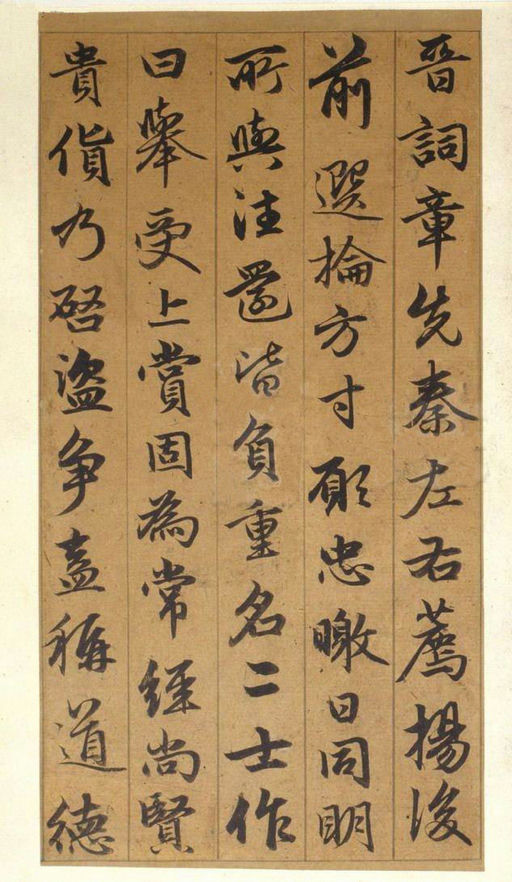 晋詞章先秦左右薦揚後
前選掄方寸願忠暾日同明
所與注選皆負重名二士作
曰舉受上賞固為常經尚賢
貴貨乃啓盜争盍稱道德